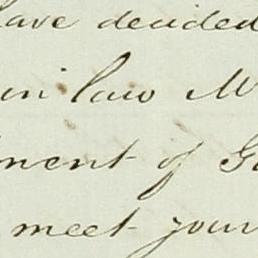 have decided
in law M
ment of G
meet your